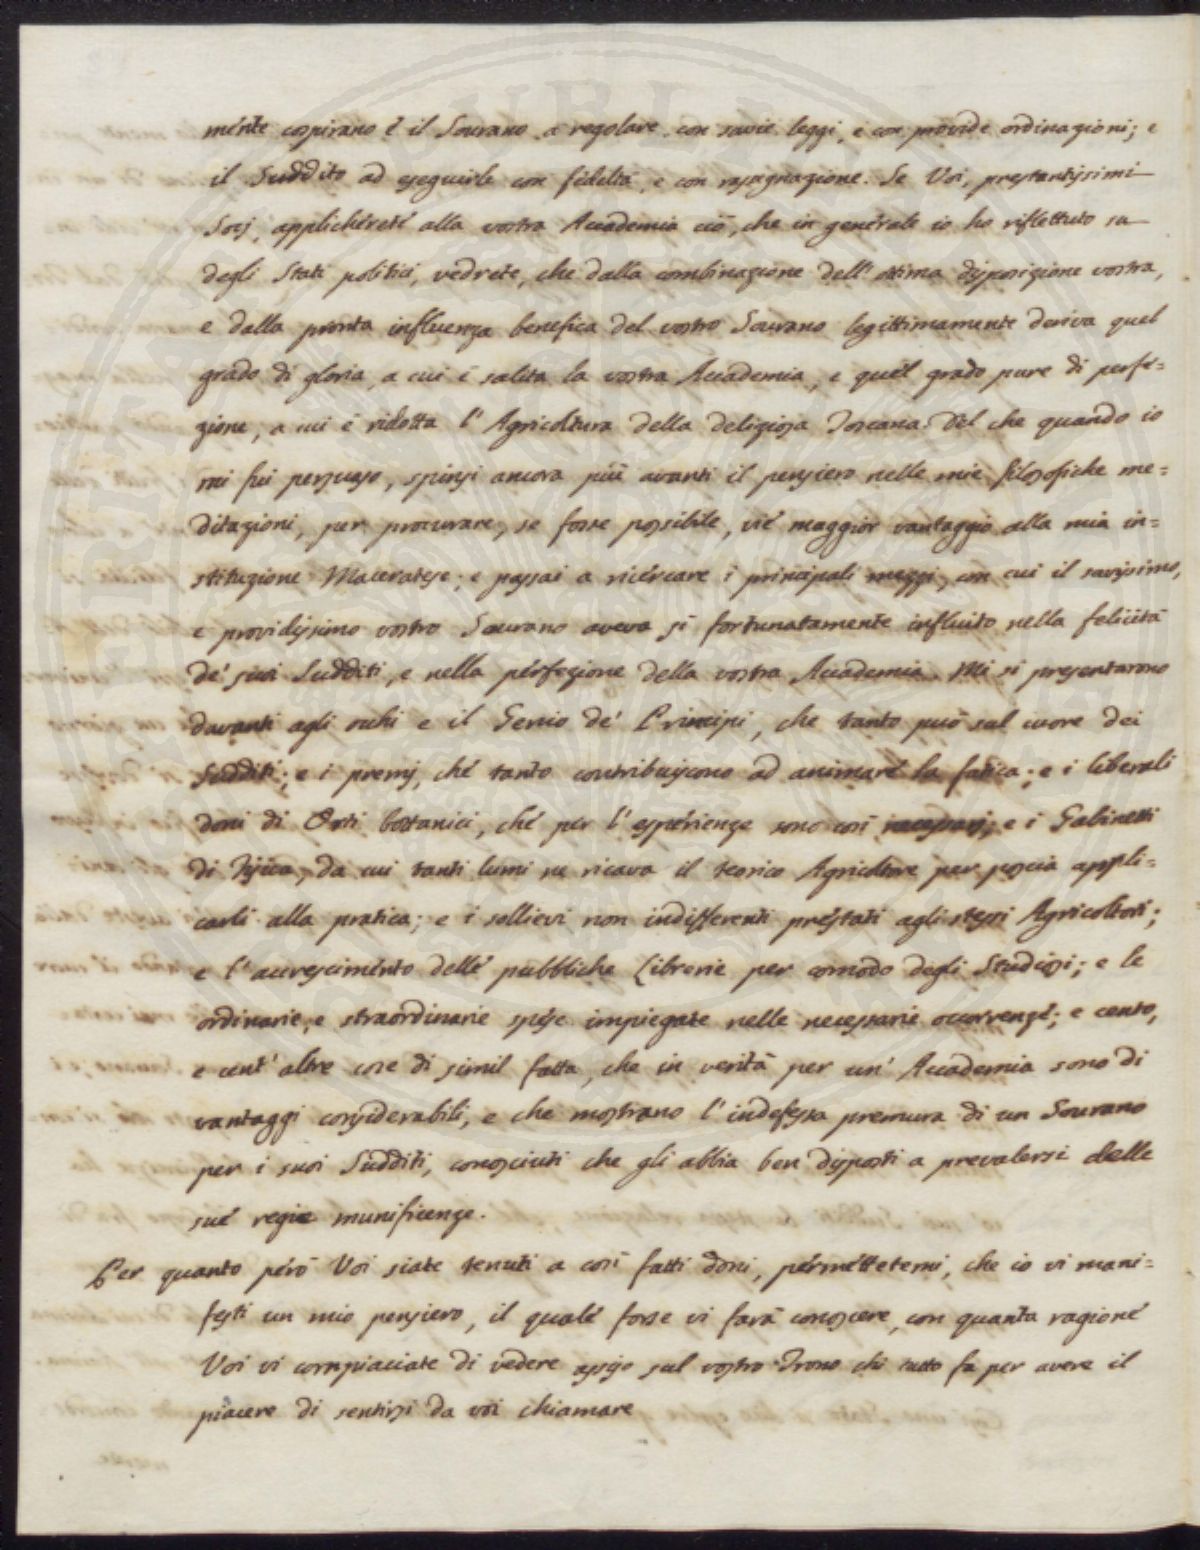 mente cospirano è il Sovrano a regolare con savie leggi, e con provide ordinazioni; e
il Suddito ad eseguirle con fedeltà, e con rasegnazione. Se Voi, prestantissimi
Socj, applicherete alla vostra Accademia ciò, che in generale io ho riflettuto su
degli Stati politici, vedrete, che dalla combinazione dell' ottima disposizione vostra,
e dalla pronta influenza benefica del vostro Sovrano legittimamente deriva quel
grado di gloria, a cui è salita la vostra Accademia, e quel grado pure di perfe=
zione, a cui è ridotta l' Agricoltura della deliziosa Toscana. Del che quando io
mi fui persuaso, spinsi ancora più avanti il pensiero nelle mie filosofiche me=
ditazioni, per procurare, se fosse possibile, vie maggior vantaggio alla mia in=
stituzione Maceratese; e passai a ricercare i principali mezzi, con cui il savissimo,
e providissimo vostro Sovrano aveva sì fortunatamente influito nella felicità
de' suoi Sudditi, e nella perfezione della vostra Accademia. Mi si presentarono
davanti agli occhi e il Genio de' Principi, che tanto può sul cuore dei
Sudditi; e i premj, che tanto contribuiscono ad animare la fatica; e i liberali
doni di Orti bottanici, che per l' esperienze sono così necessarj; e i Gabinetti
di Fisica, da cui tanti lumi ne ricava il teorico Agricoltore per poscia appli=
carli alla pratica; e i sollievi non indifferenti prestati agli stessi Agricoltori;
e l' accrescimento delle pubbliche Librerie per comodo degli Studiosi; e le
ordinarie, e straordinarie spese impiegate nelle necessarie occorrenze; e cento,
e cent' altre cose di simil fatta, che in verità per un' Accademia sono di
vantaggi considerabili, e che mostrano l' indefessa premura di un Sovrano
per i suoi Sudditi, conosciuti che gli abbia ben disposti a prevalersi delle
sue regie munificenze.
Per quanto però Voi siate tenuti a così fatti doni, permettetemi, che io vi mani=
festi un mio pensiero, il quale forse vi farà conoscere, con quanta ragione
Voi vi compiacciate di vedere assiso sul vostro Trono chi tutto fa per avere il
piacere di sentirsi da voi chiamare